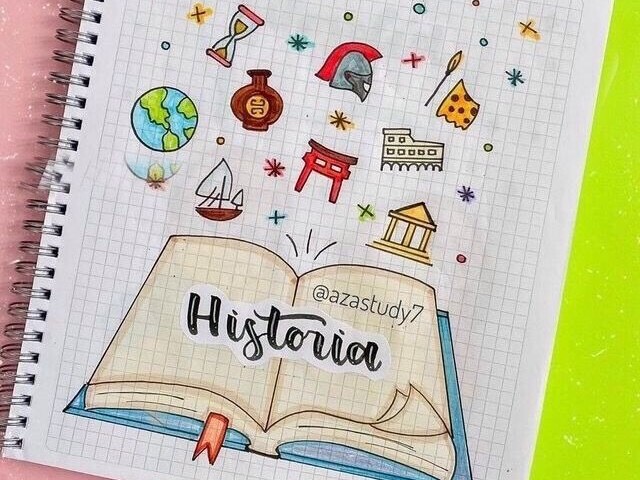 @azastudy7
Historia